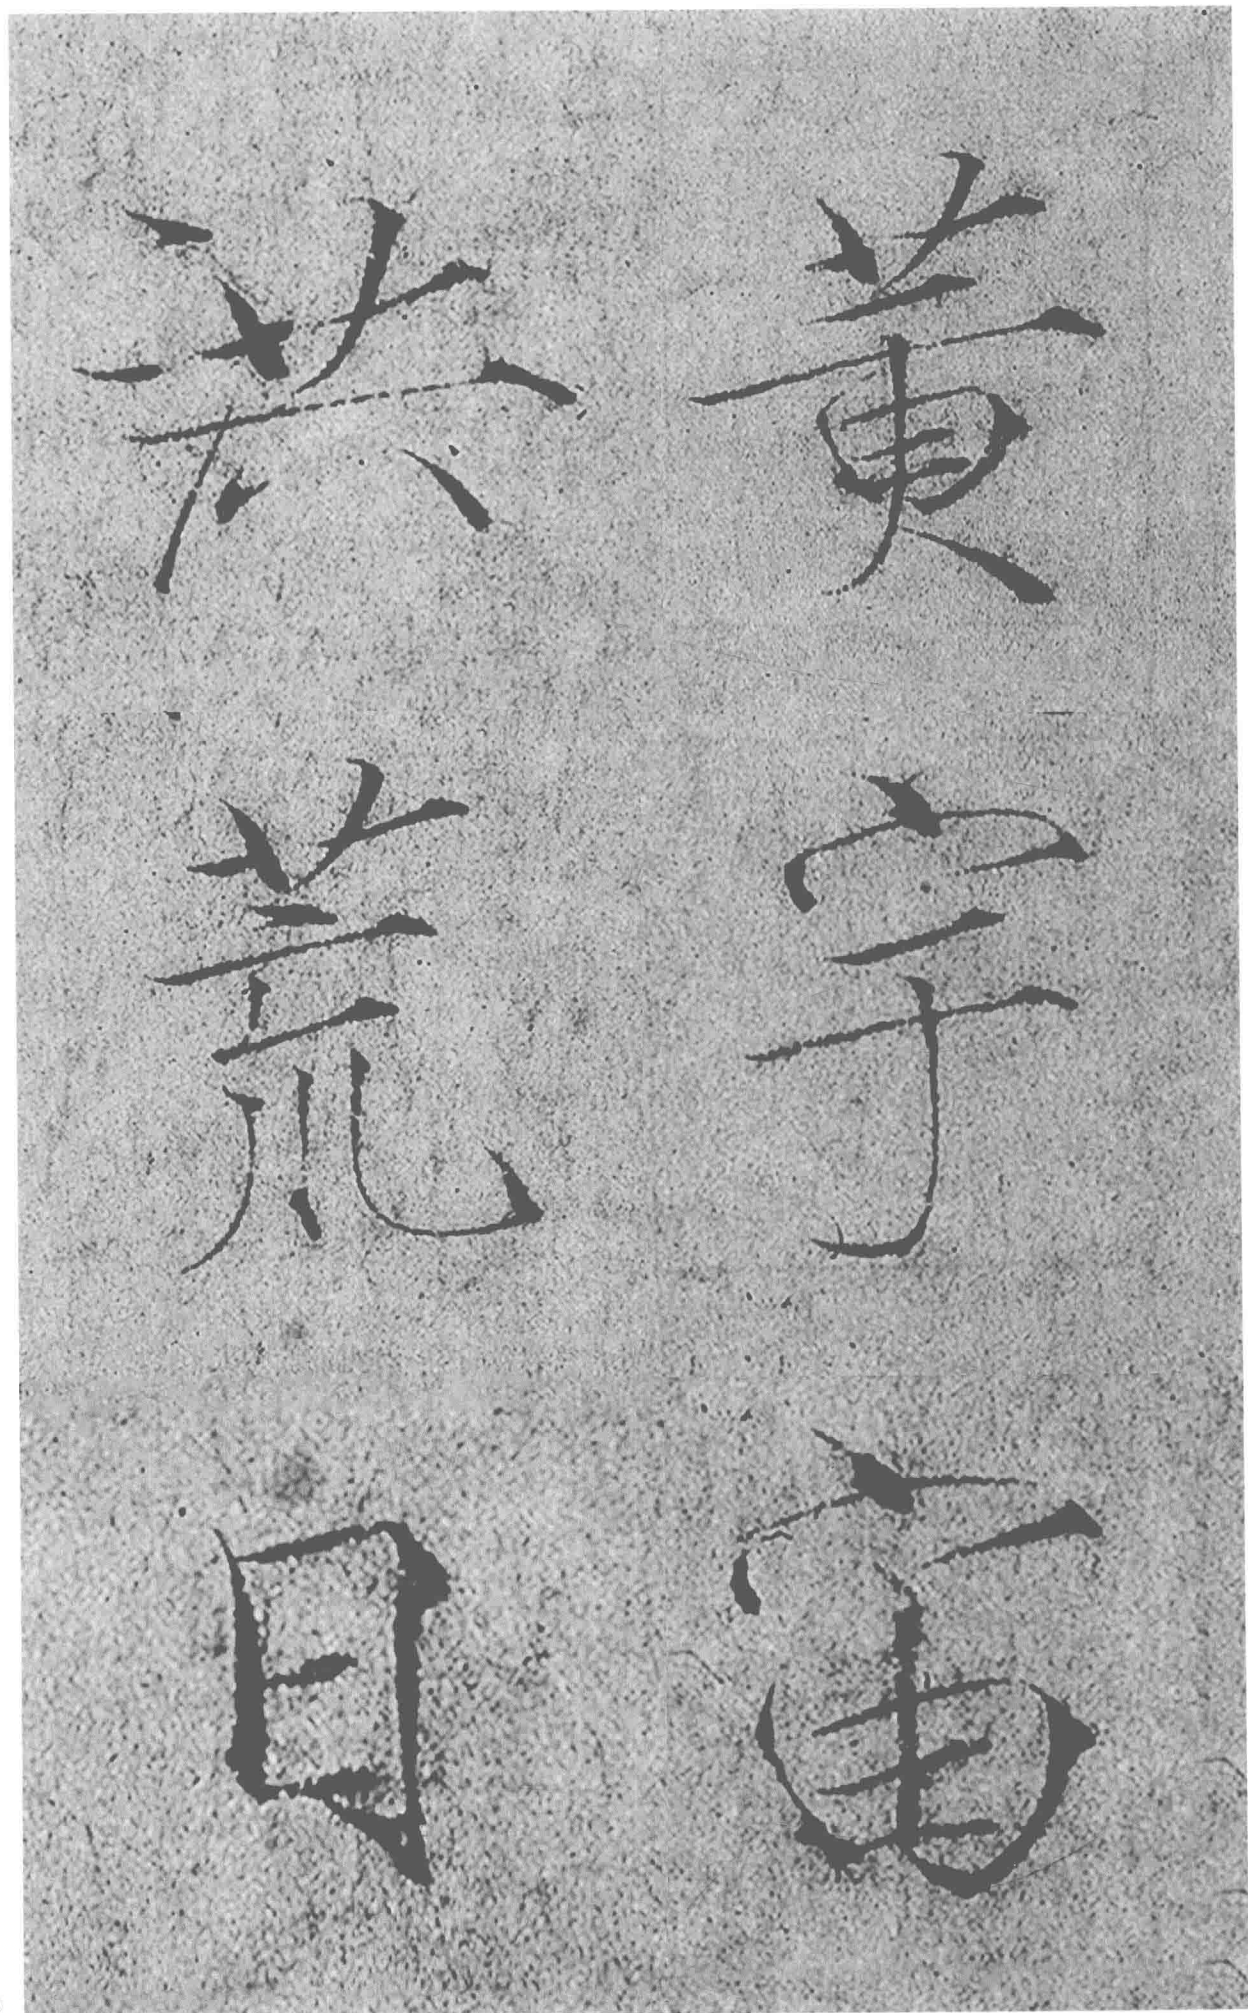 黃宇宙
洪荒日